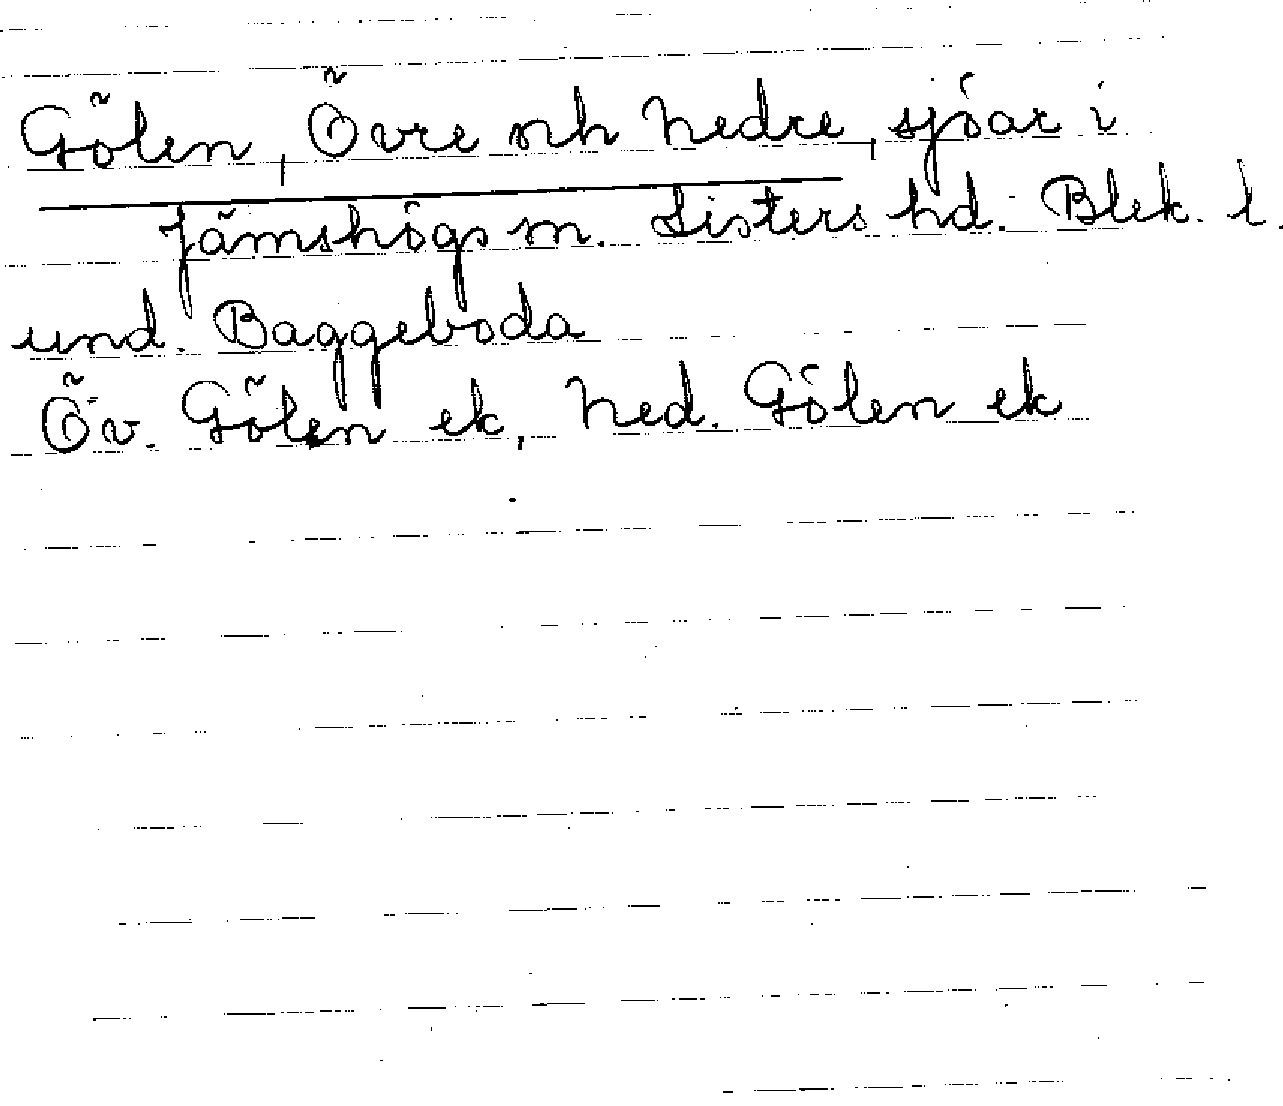 Gölen, Övre och Nedre, sjöar i
Jämshögs sn. Listers hd. Blek. l.
und. Baggeboda
Öv. Gölen ek, Ned. Gölen ek